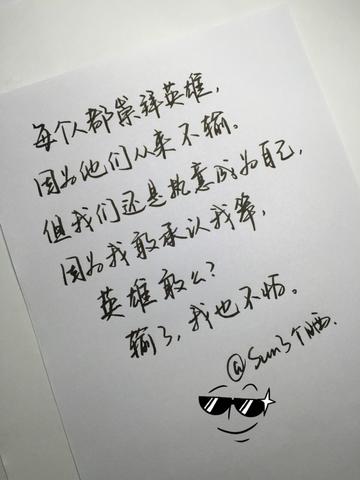 每个人都崇拜英雄，
因为他们从来不输。
但我们还是执意成为自己，
因为我敢承认我笨，
英雄敢么？
输了，我也不怕。
@Sun了个晒